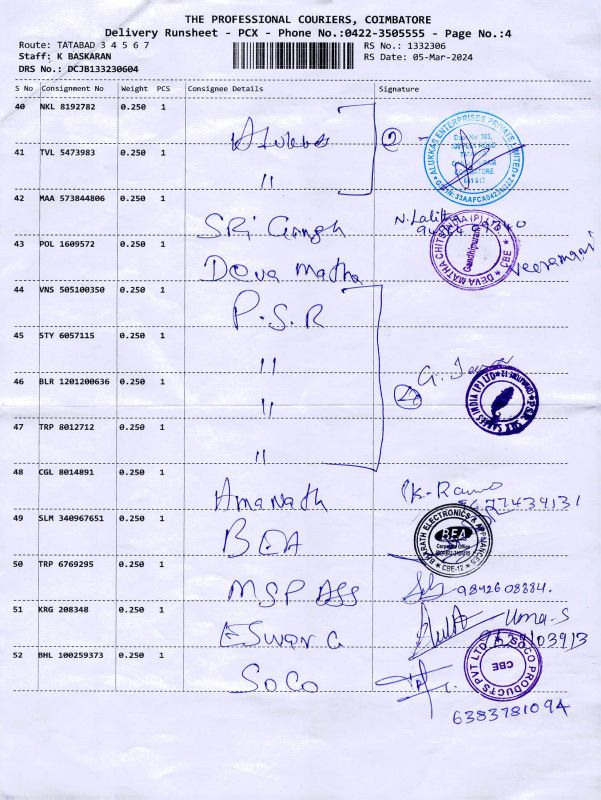 THE PROFESSIONAL COURIERS, COIMBATORE
Delivery Runsheet - PCX - Phone No.:0422-3505555 - Page No.:4
Route: TATABAD 3 4 5 6 7
RS No.: 1332306
Staff: K BASKARAN
RS Date: 05-Mar-2024
DRS No.: DCJB133230604
S No Consignment No Weight PCS Consignee Details Signature
40 NKL 8192782 0.250 1 Alukkas
41 TVL 5473983 0.250 1 "
ALUKKAS ENTERPRISES PRIVATE LIMITED
42 MAA 573844806 0.250 1 SRi Gangh N. Lalitha
43 POL 1609572 0.250 1 Deva Matha Veeramani
DEVA MATHA CHITS INDIA (P) LTD
Gandhipuram
CBE
44 VNS 505100350 0.250 1 P.S.R
45 STY 6057115 0.250 1 "
46 BLR 1201200636 0.250 1 "
47 TRP 8012712 0.250 1 "
48 CGL 8014891 0.250 1 Amanath
49 SLM 340967651 0.250 1 BEA
BHARATH ELECTRONICS & APPLIANCES
BEA
Corporate Office
CBE-12
50 TRP 6769295 0.250 1 MSP ASS 9842608884.
51 KRG 208348 0.250 1 ESwar G Uma-S
52 BHL 100259373 0.250 1 SoCo
SOCO PRODUCTS PVT LTD
CBE
6383781094